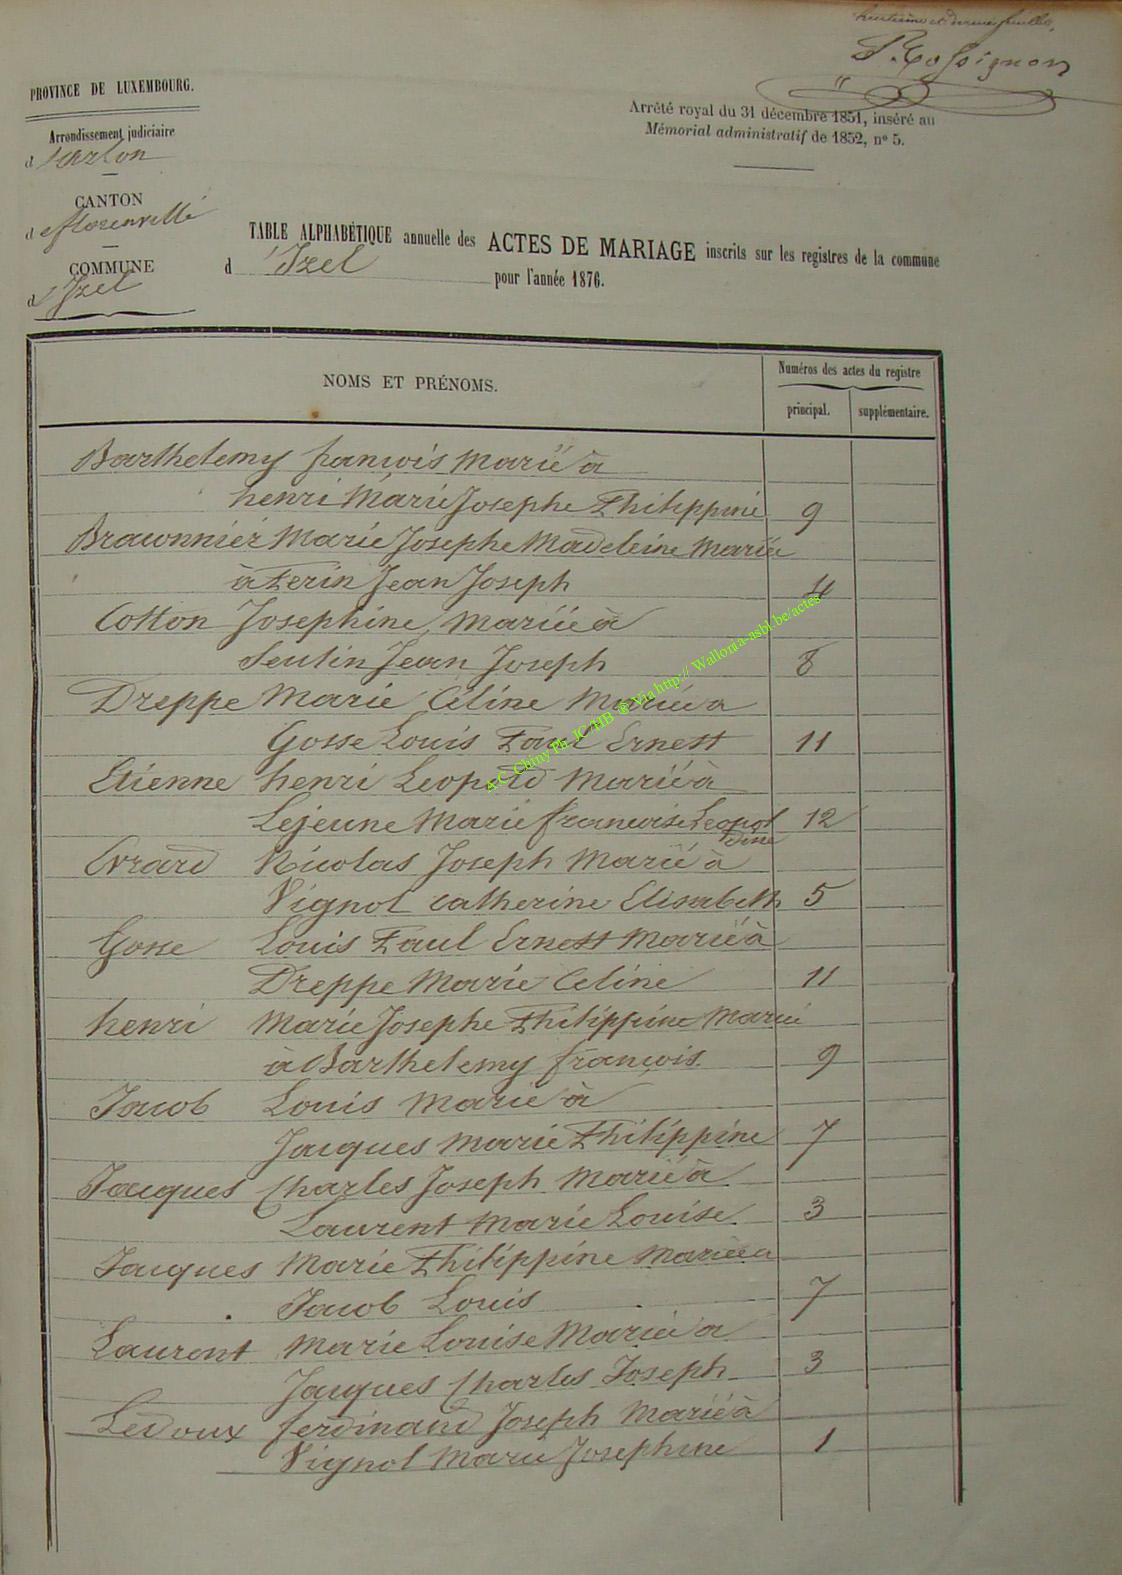 huitième et dernier feuillet,
P. Rossignon
PROVINCE DE LUXEMBOURG.
Arrondissement judiciaire
d'Arlon
CANTON
de florenville
COMMUNE
d'Izel
Arrêté royal du 31 décembre 1851, inséré au
Mémorial administratif de 1852, nº 5.
TABLE ALPHABÉTIQUE annuelle des ACTES DE MARIAGE inscrits sur les registres de la commune
d'Izel pour l'année 1876.
NOMS ET PRÉNOMS.
Numéros des actes du registre
principal. supplémentaire.
Barthelemy françois Marié à
henri Marie Josephe Philippine 9
Braconnier Marie Josephe Madeleine Mariée
à Perin Jean Joseph 4
Cotton Josephine Mariée à
Seutin Jean Joseph 8
Dreppe Marie Céline Mariée a
Gosse Louis Paul Ernest 11
Etienne henri Leopold Marié à
Lejeune Marie francoise Leopol
dine 12
Evrard Nicolas Joseph Marié à
Vignol catherine Elisabeth 5
Gosse Louis Paul Ernest Marié à
Dreppe Marie Celine 11
henri Marie Josephe Philippine Marié
à Barthelemy françois. 9
Jacob Louis Marié à
Jacques Marie Philippine 7
Jacques Charles Joseph Marié à
Laurent Marie Louise. 3
Jacques Marie Philippine Mariée a
Jacob Louis 7
Laurent Marie Louise Mariée a
Jacques Charles Joseph 3
Ledoux ferdinand Joseph Marié à
Vignol Marie Josephine 1
A.C. Chiny Ph. JC-HB ® Via http:// Wallonia-asbl.be/actes